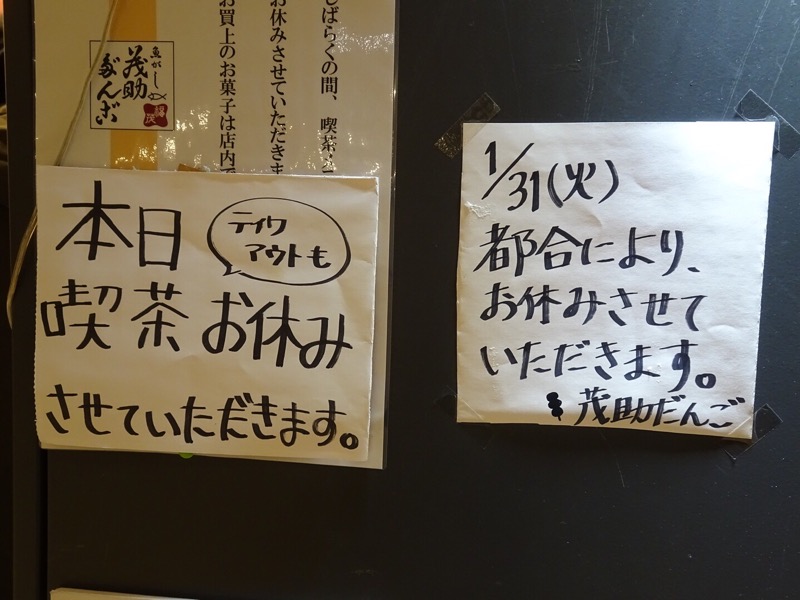 しばらくの間、喫茶
お休みさせていただきま
お買上のお菓子は店内で
魚がし
茂助
だんご
本日
テイク
アウトも
喫茶お休み
させていただきます。
1/31(火)
都合により、
お休みさせて
いただきます。
茂助だんご